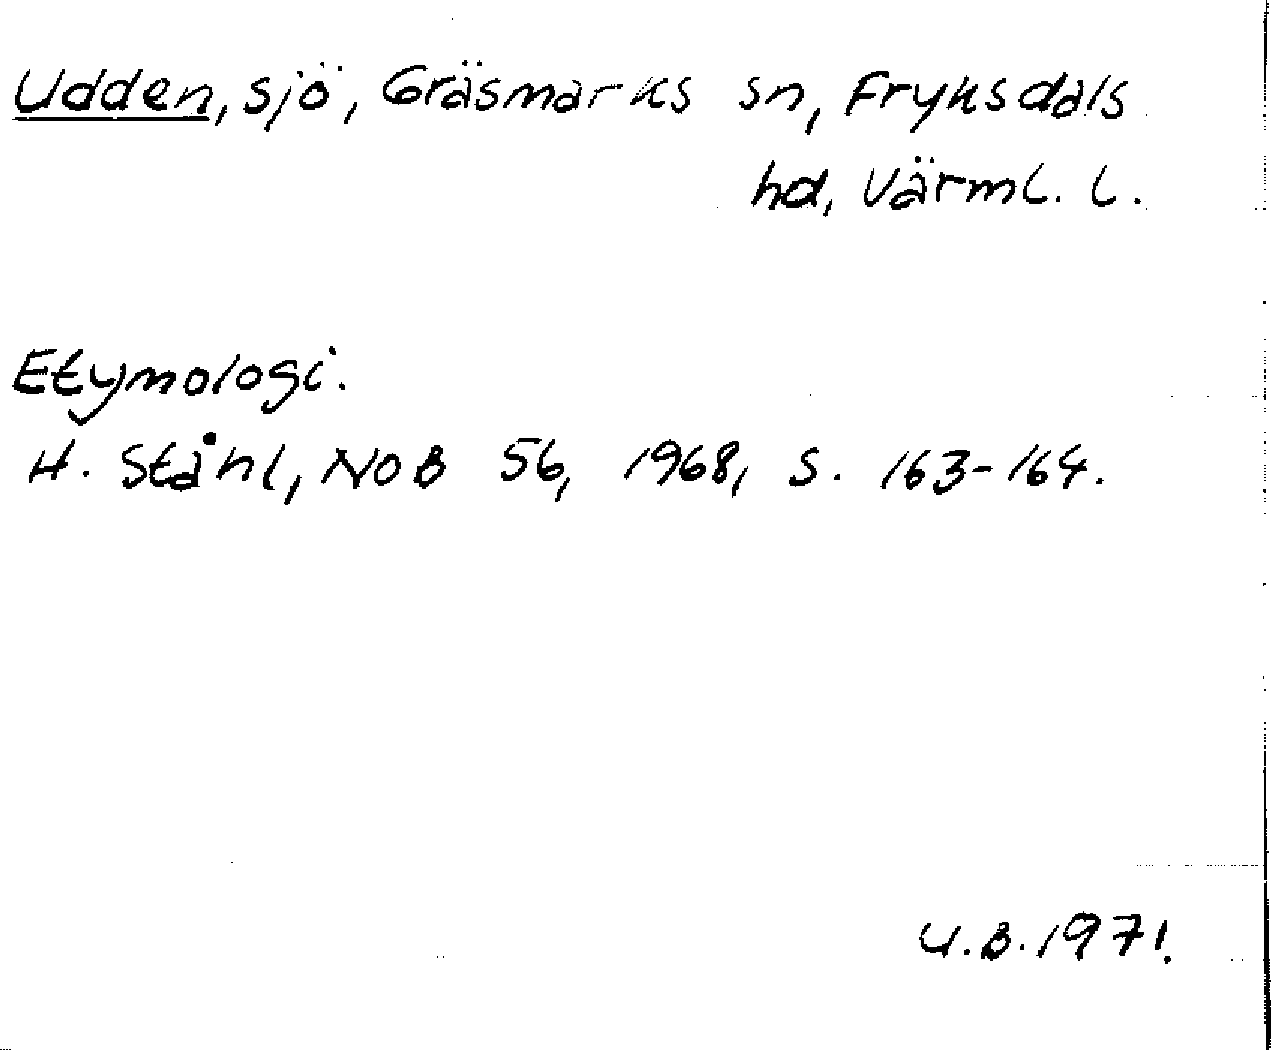 Udden, sjö, Gräsmarks sn, Fryksdals
hd, Värml. l.
Etymologi.
H. Ståhl, NoB 56, 1968, s. 163-164.
U.B. 1971.